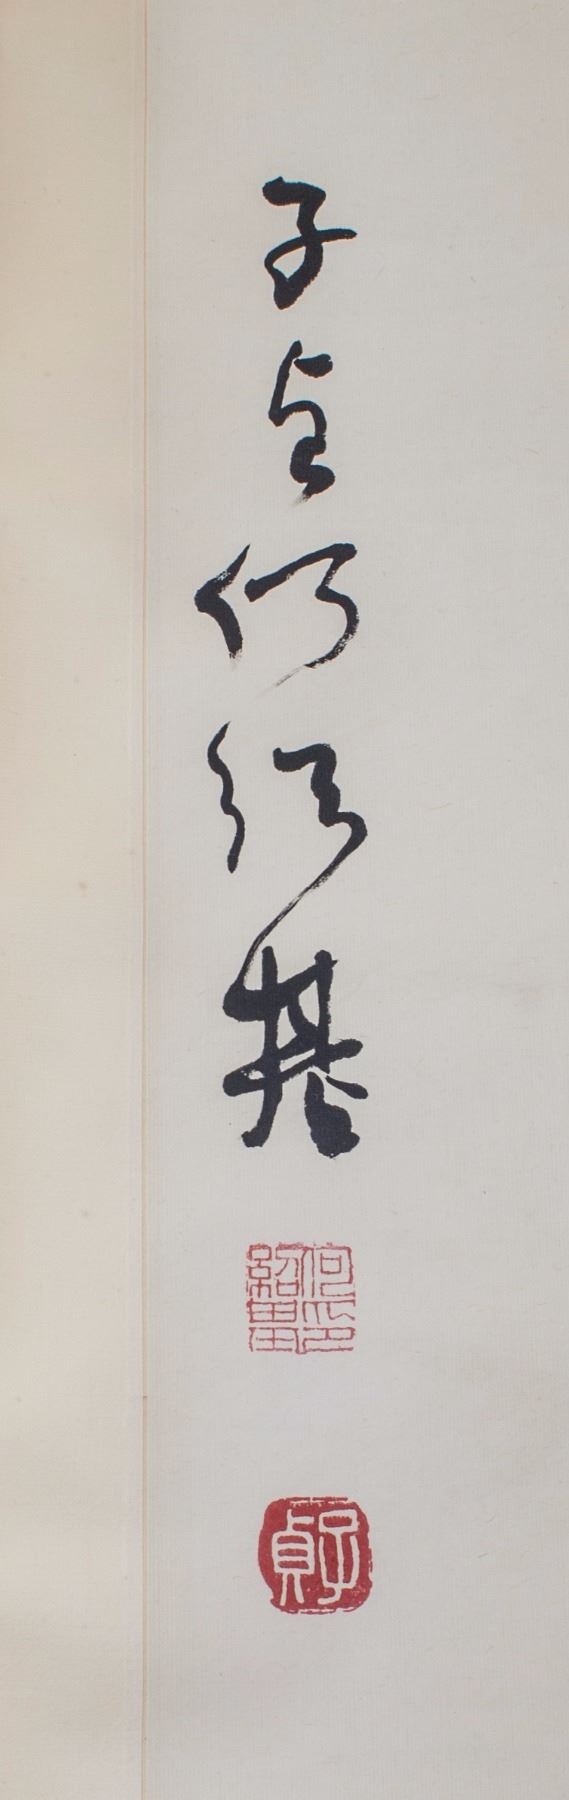 子貞何紹基
何紹基印
子貞